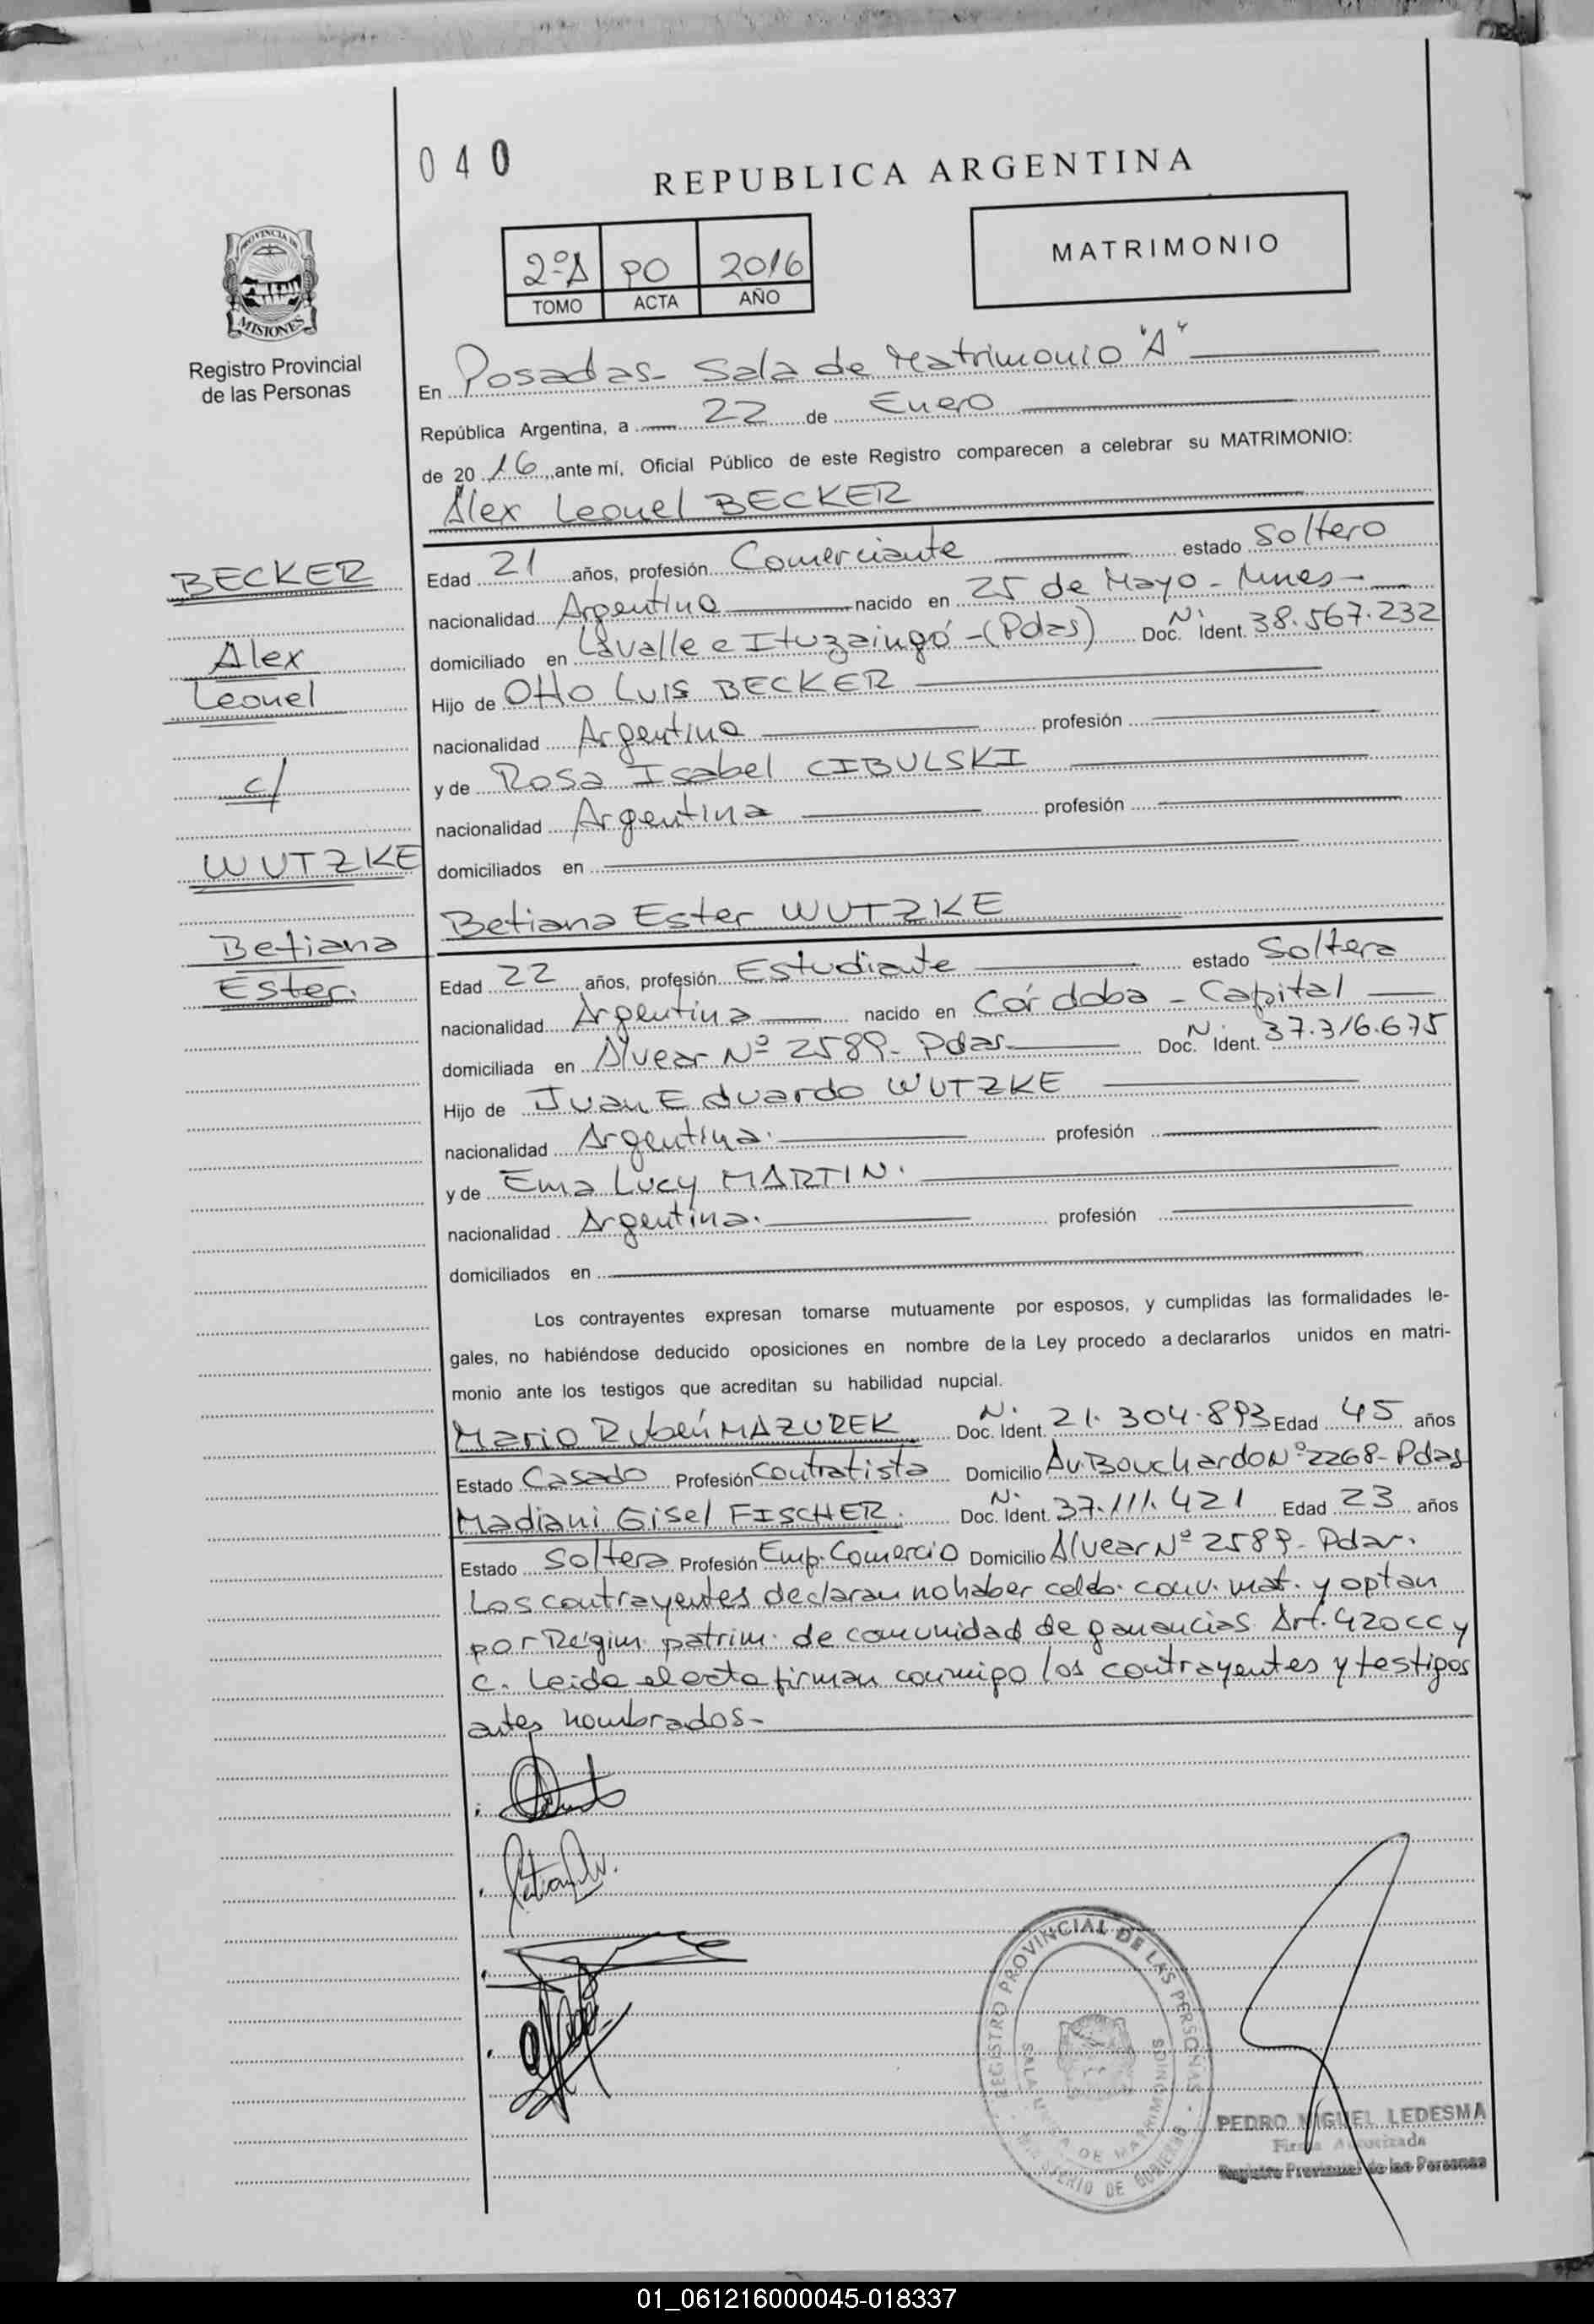 040
REPUBLICA ARGENTINA
2ºA PO 2016
TOMO ACTA AÑO
MATRIMONIO
PROVINCIA DE
MISIONES
Registro Provincial
de las Personas
En Posadas- Sala de Matrimonio "A"
República Argentina, a 22 de Enero
de 2016, ante mí, Oficial Público de este Registro comparecen a celebrar su MATRIMONIO:
Alex Leonel BECKER
BECKER
Alex
Leonel
c/
WUTZKE
Betiana
Ester.
Edad 21 años, profesión Comerciante estado Soltero
nacionalidad Argentina nacido en 25 de Mayo - Mnes -
domiciliado en Lavalle e Ituzaingó - (Pdas) Doc. Nº Ident. 38.567.232
Hijo de Otto Luis BECKER
nacionalidad Argentina profesión
y de Rosa Isabel CIBULSKI
nacionalidad Argentina profesión
domiciliados en
Betiana Ester WUTZKE
Edad 22 años, profesión Estudiante estado Soltera
nacionalidad Argentina nacido en Córdoba - Capital
domiciliada en Alvear Nº 2589- Pdas Doc. Nº Ident. 37.316.675
Hijo de Juan Eduardo WUTZKE
nacionalidad Argentina. profesión
y de Ema Lucy MARTIN.
nacionalidad Argentina. profesión
domiciliados en
Los contrayentes expresan tomarse mutuamente por esposos, y cumplidas las formalidades le-
gales, no habiéndose deducido oposiciones en nombre de la Ley procedo a declararlos unidos en matri-
monio ante los testigos que acreditan su habilidad nupcial.
Mario Rubén MAZUREK Doc. Nº Ident. 21.304.893 Edad 45 años
Estado Casado Profesión Contratista Domicilio Av. Bouchardo Nº 2268- Pdas
Madiani Gisel FISCHER. Doc. Nº Ident. 37.111.421 Edad 23 años
Estado Soltera Profesión Emp. Comercio Domicilio Alvear Nº 2589- Pdas.
Los contrayentes declaran no haber celeb. conv. mat. y optan
por Régim. patrim. de comunidad de ganancias. Art. 420 CC y
C. Leida el acta firman conmigo los contrayentes y testigos
antes nombrados-
REGISTRO PROVINCIAL DE LAS PERSONAS
MINISTERIO DE GOBIERNO
PEDRO MIGUEL LEDESMA
Firma Autorizada
Registro Provincial de las Personas
01_061216000045-018337